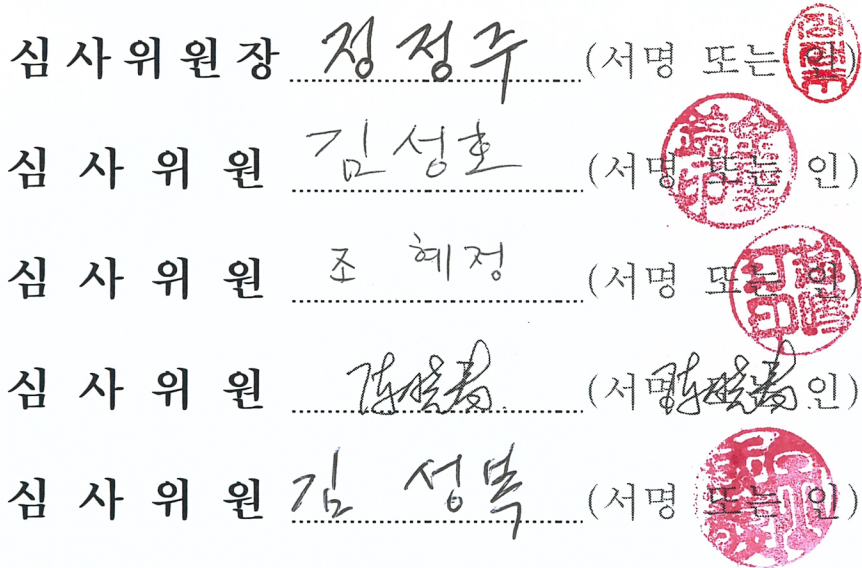 심사위원장 정정주 (서명 또는 인)
심 사 위 원 김성호 (서명 또는 인)
심 사 위 원 조 혜정 (서명 또는 인)
심 사 위 원 (서명 인)
심 사 위 원 김 성복 (서명 또는 인)